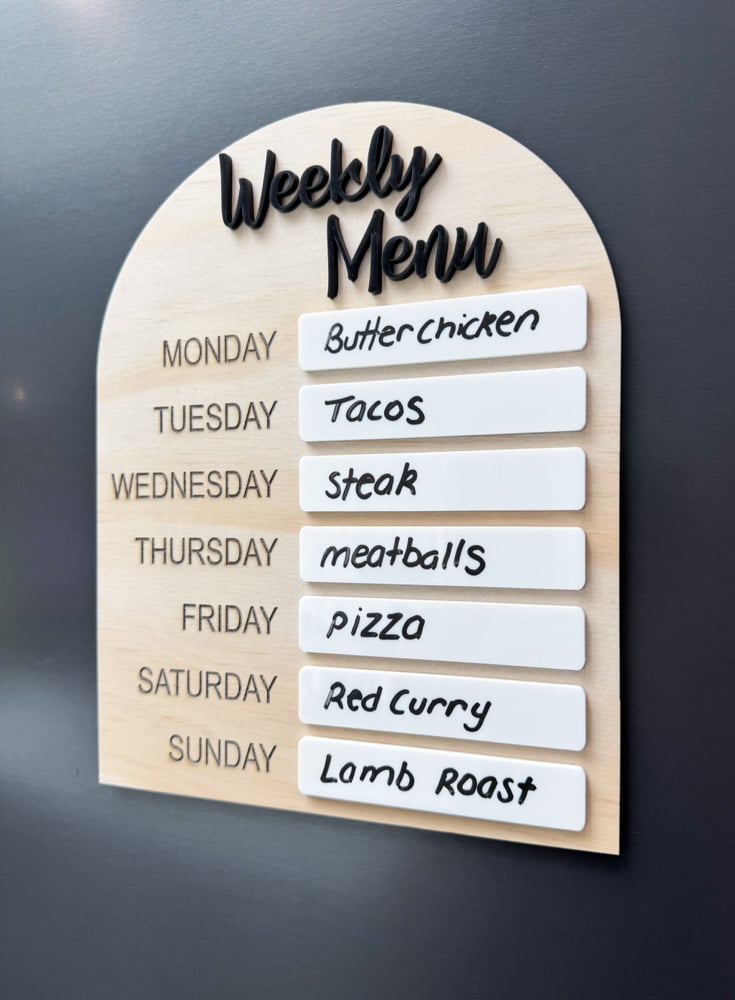 Weekly
Menu
MONDAY Butter chicken
TUESDAY Tacos
WEDNESDAY Steak
THURSDAY meatballs
FRIDAY pizza
SATURDAY Red Curry
SUNDAY Lamb Roast